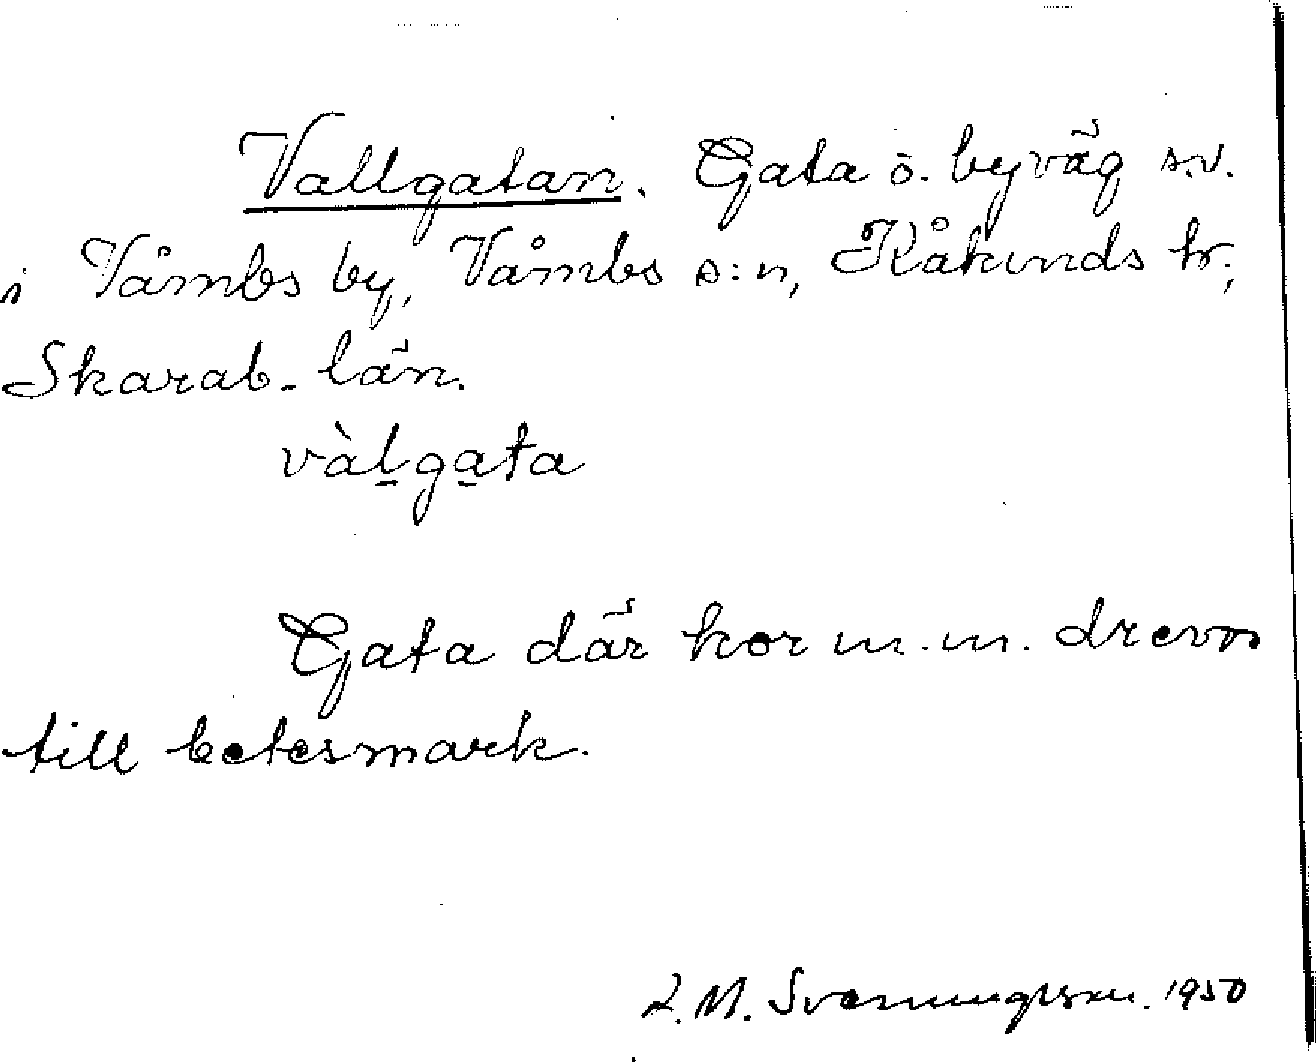 Vallgatan. Gata o. byväg s.v.
i Våmbs by, Våmbs s:n, Kåkinds hr;
Skarab. län.
vàl̠ga̠ta
Gata där kor m.m. drevos
till betesmark.
L. M. Svenungsson. 1950